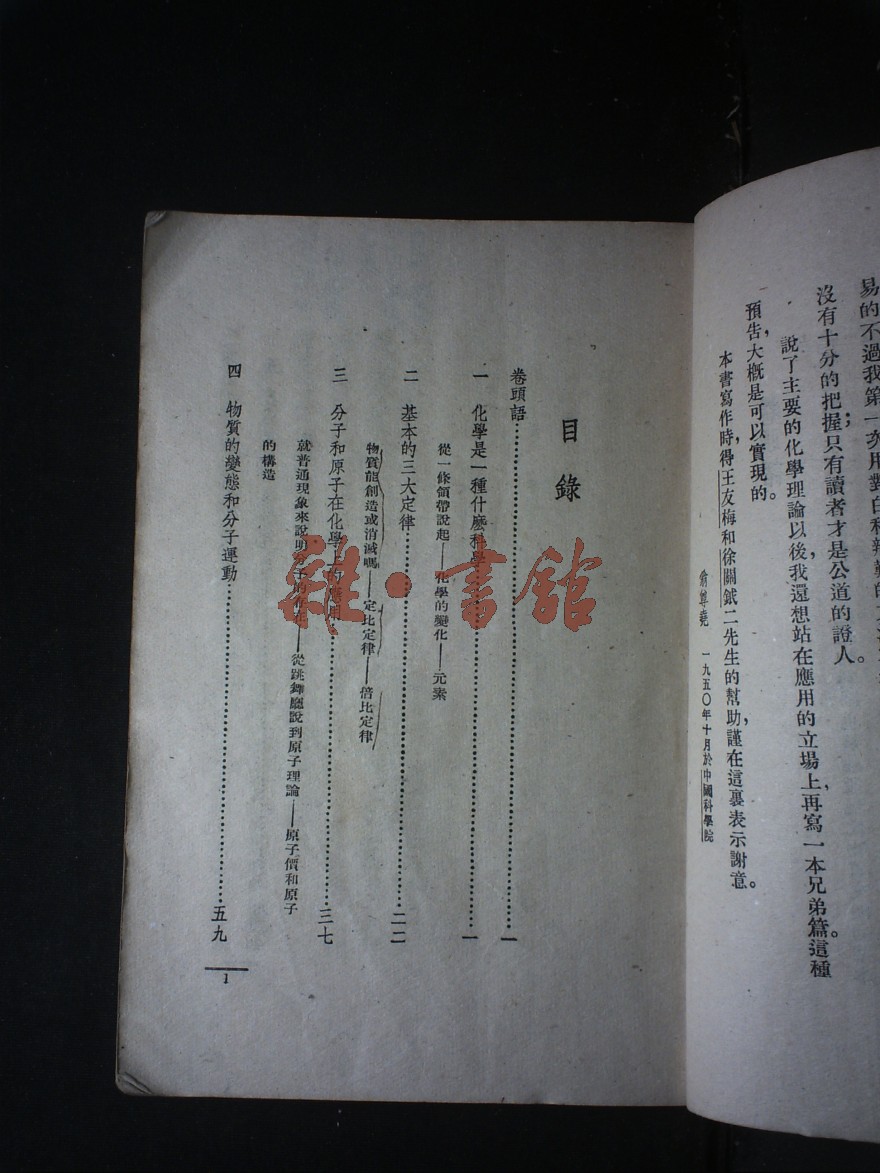 沒有十分的把握;只有讀者才是公道的證人。
說了主要的化學理論以後,我還想站在應用的立場上,再寫一本兄弟篇。這種
預告,大概是可以實現的。
本書寫作時,得王友梅和徐關鉞二先生的幫助,謹在這裏表示謝意。
一九五〇年十月於中國科學院
目錄
卷頭語……一
一 化學是一種什麽科學……一
從一條領帶說起——化學的變化——元素
二 基本的三大定律……二二
物質能創造或消滅嗎——定比定律——倍比定律
三 分子和原子在化學上的應用……三七
就普通現象來說明分子的存在——從跳舞廳說到原子理論——原子價和原子
的構造
四 物質的變態和分子運動……五九
1
雜·書館